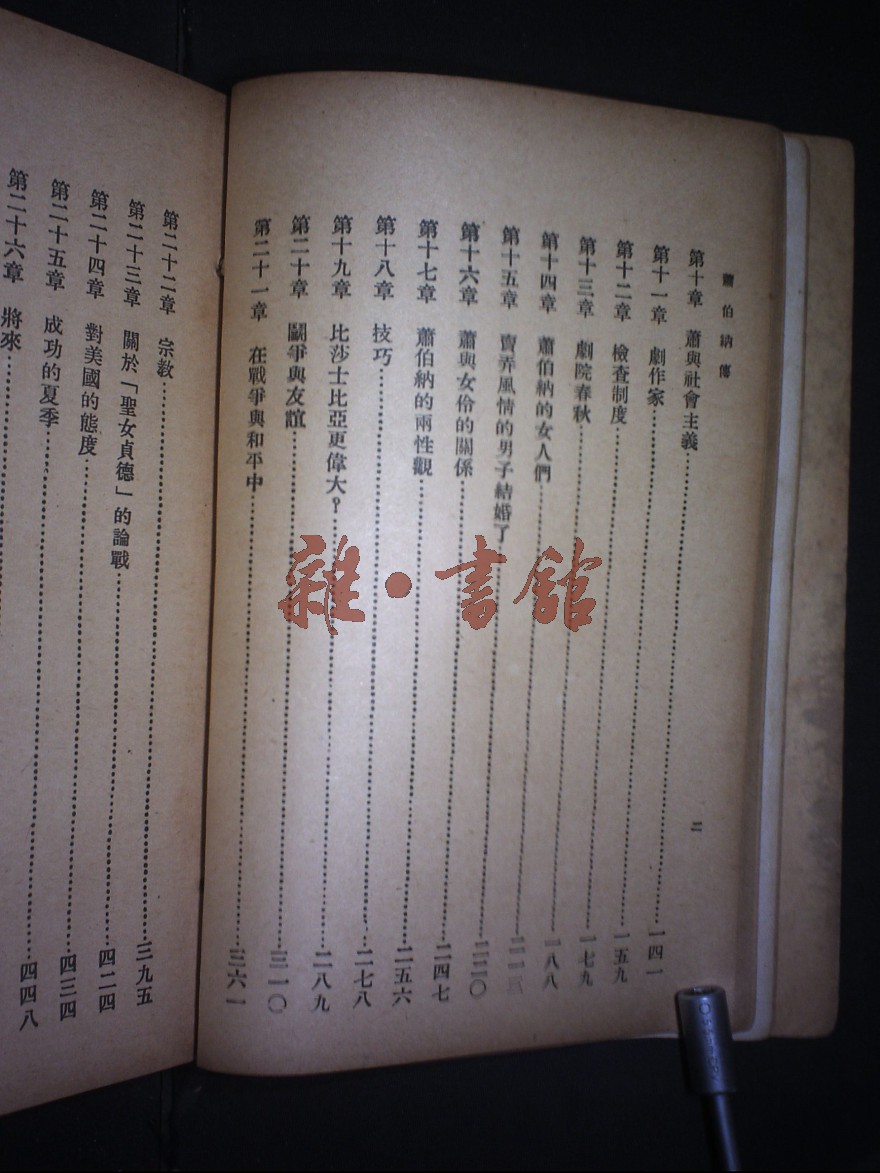 蕭伯納傳
第十章 蕭與社會主義……一四一
第十一章 劇作家……一五九
第十二章 檢查制度……一七九
第十三章 劇院春秋……一八八
第十四章 蕭伯納的女人們……二一三
第十五章 賣弄風情的男子結婚了……二二〇
第十六章 蕭與女伶的關係……二四七
第十七章 蕭伯納的兩性觀……二五六
第十八章 技巧……二七八
第十九章 比莎士比亞更偉大?……二八九
第二十章 鬪爭與友誼……三一〇
第二十一章 在戰爭與和平中……三六一
二
第二十二章 宗教……三九五
第二十三章 關於「聖女貞德」的論戰……四二四
第二十四章 對美國的態度……四三四
第二十五章 成功的夏季……四四八
第二十六章 將來……
雜·書館